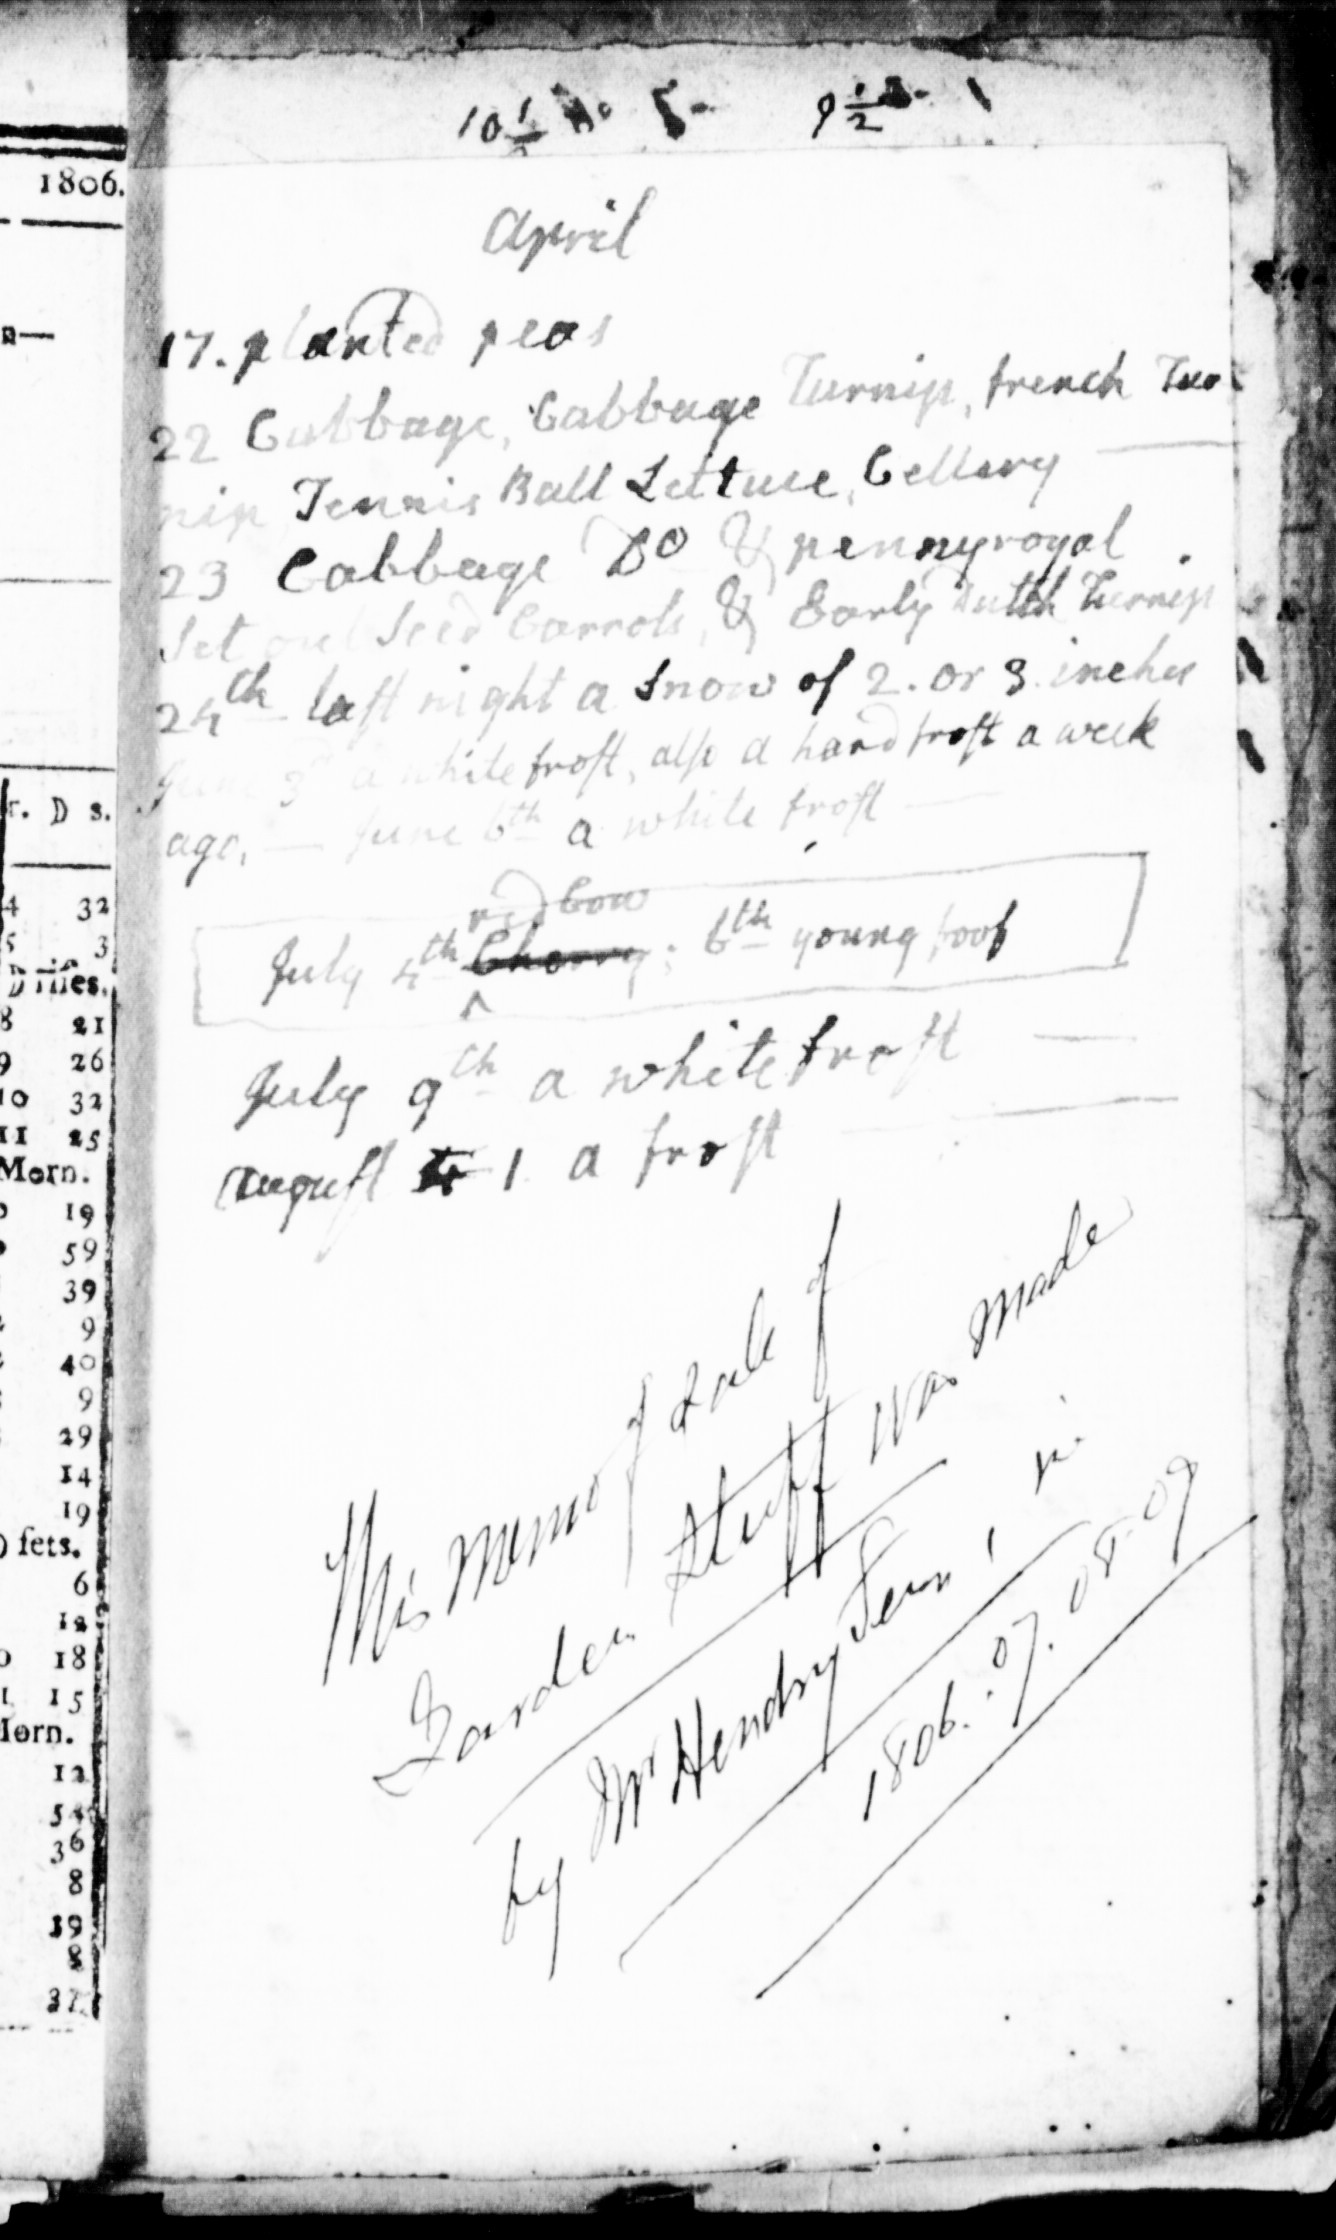 1806.
10 1/2
9 1/2
April
17. planted peas
22 Cabbage, Cabbage Turnip, french Tur
nip, Tennis Ball Lettuce, Cellery
23 Cabbage Do & pennyroyal
Set out Seed Carrots, & Early Dutch Turnip
24th last night a Snow of 2. or 3 inches
June 3d a white frost, also a hard frost a week
ago. — June 6th a white frost —
red Cow
July 4th Cherry; 6th young
July 9th a white frost —
August 1 a frost —
This Memo of Sale of
Garden Stuff was Made
by Mr Hendry Senr, in
1806. :07. 08. 09
r. D s.
4 32
5 3
D rises.
8 21
9 26
10 32
11 25
Morn.
19
59
39
9
40
9
29
14
19
D sets.
6
12
18
15
Morn.
12
54
36
8
19
37